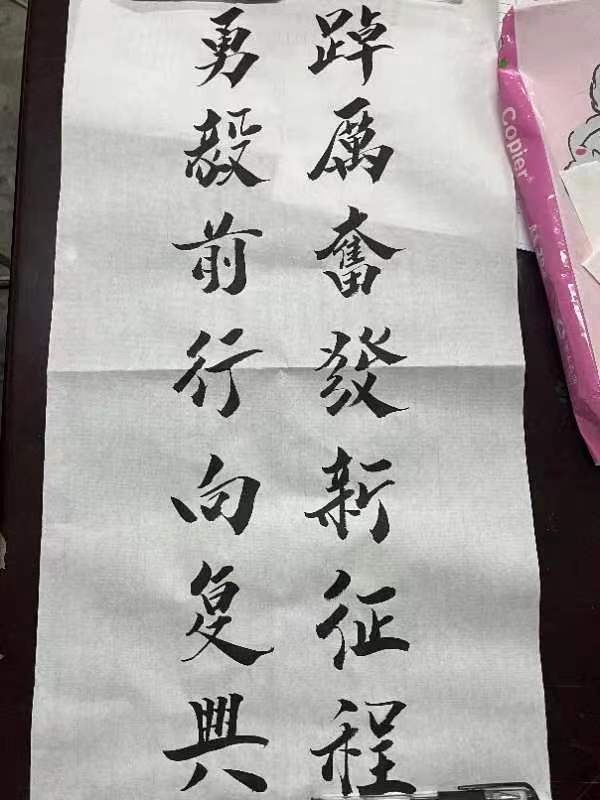 踔厲奮發新征程
勇毅前行向复興
Copier